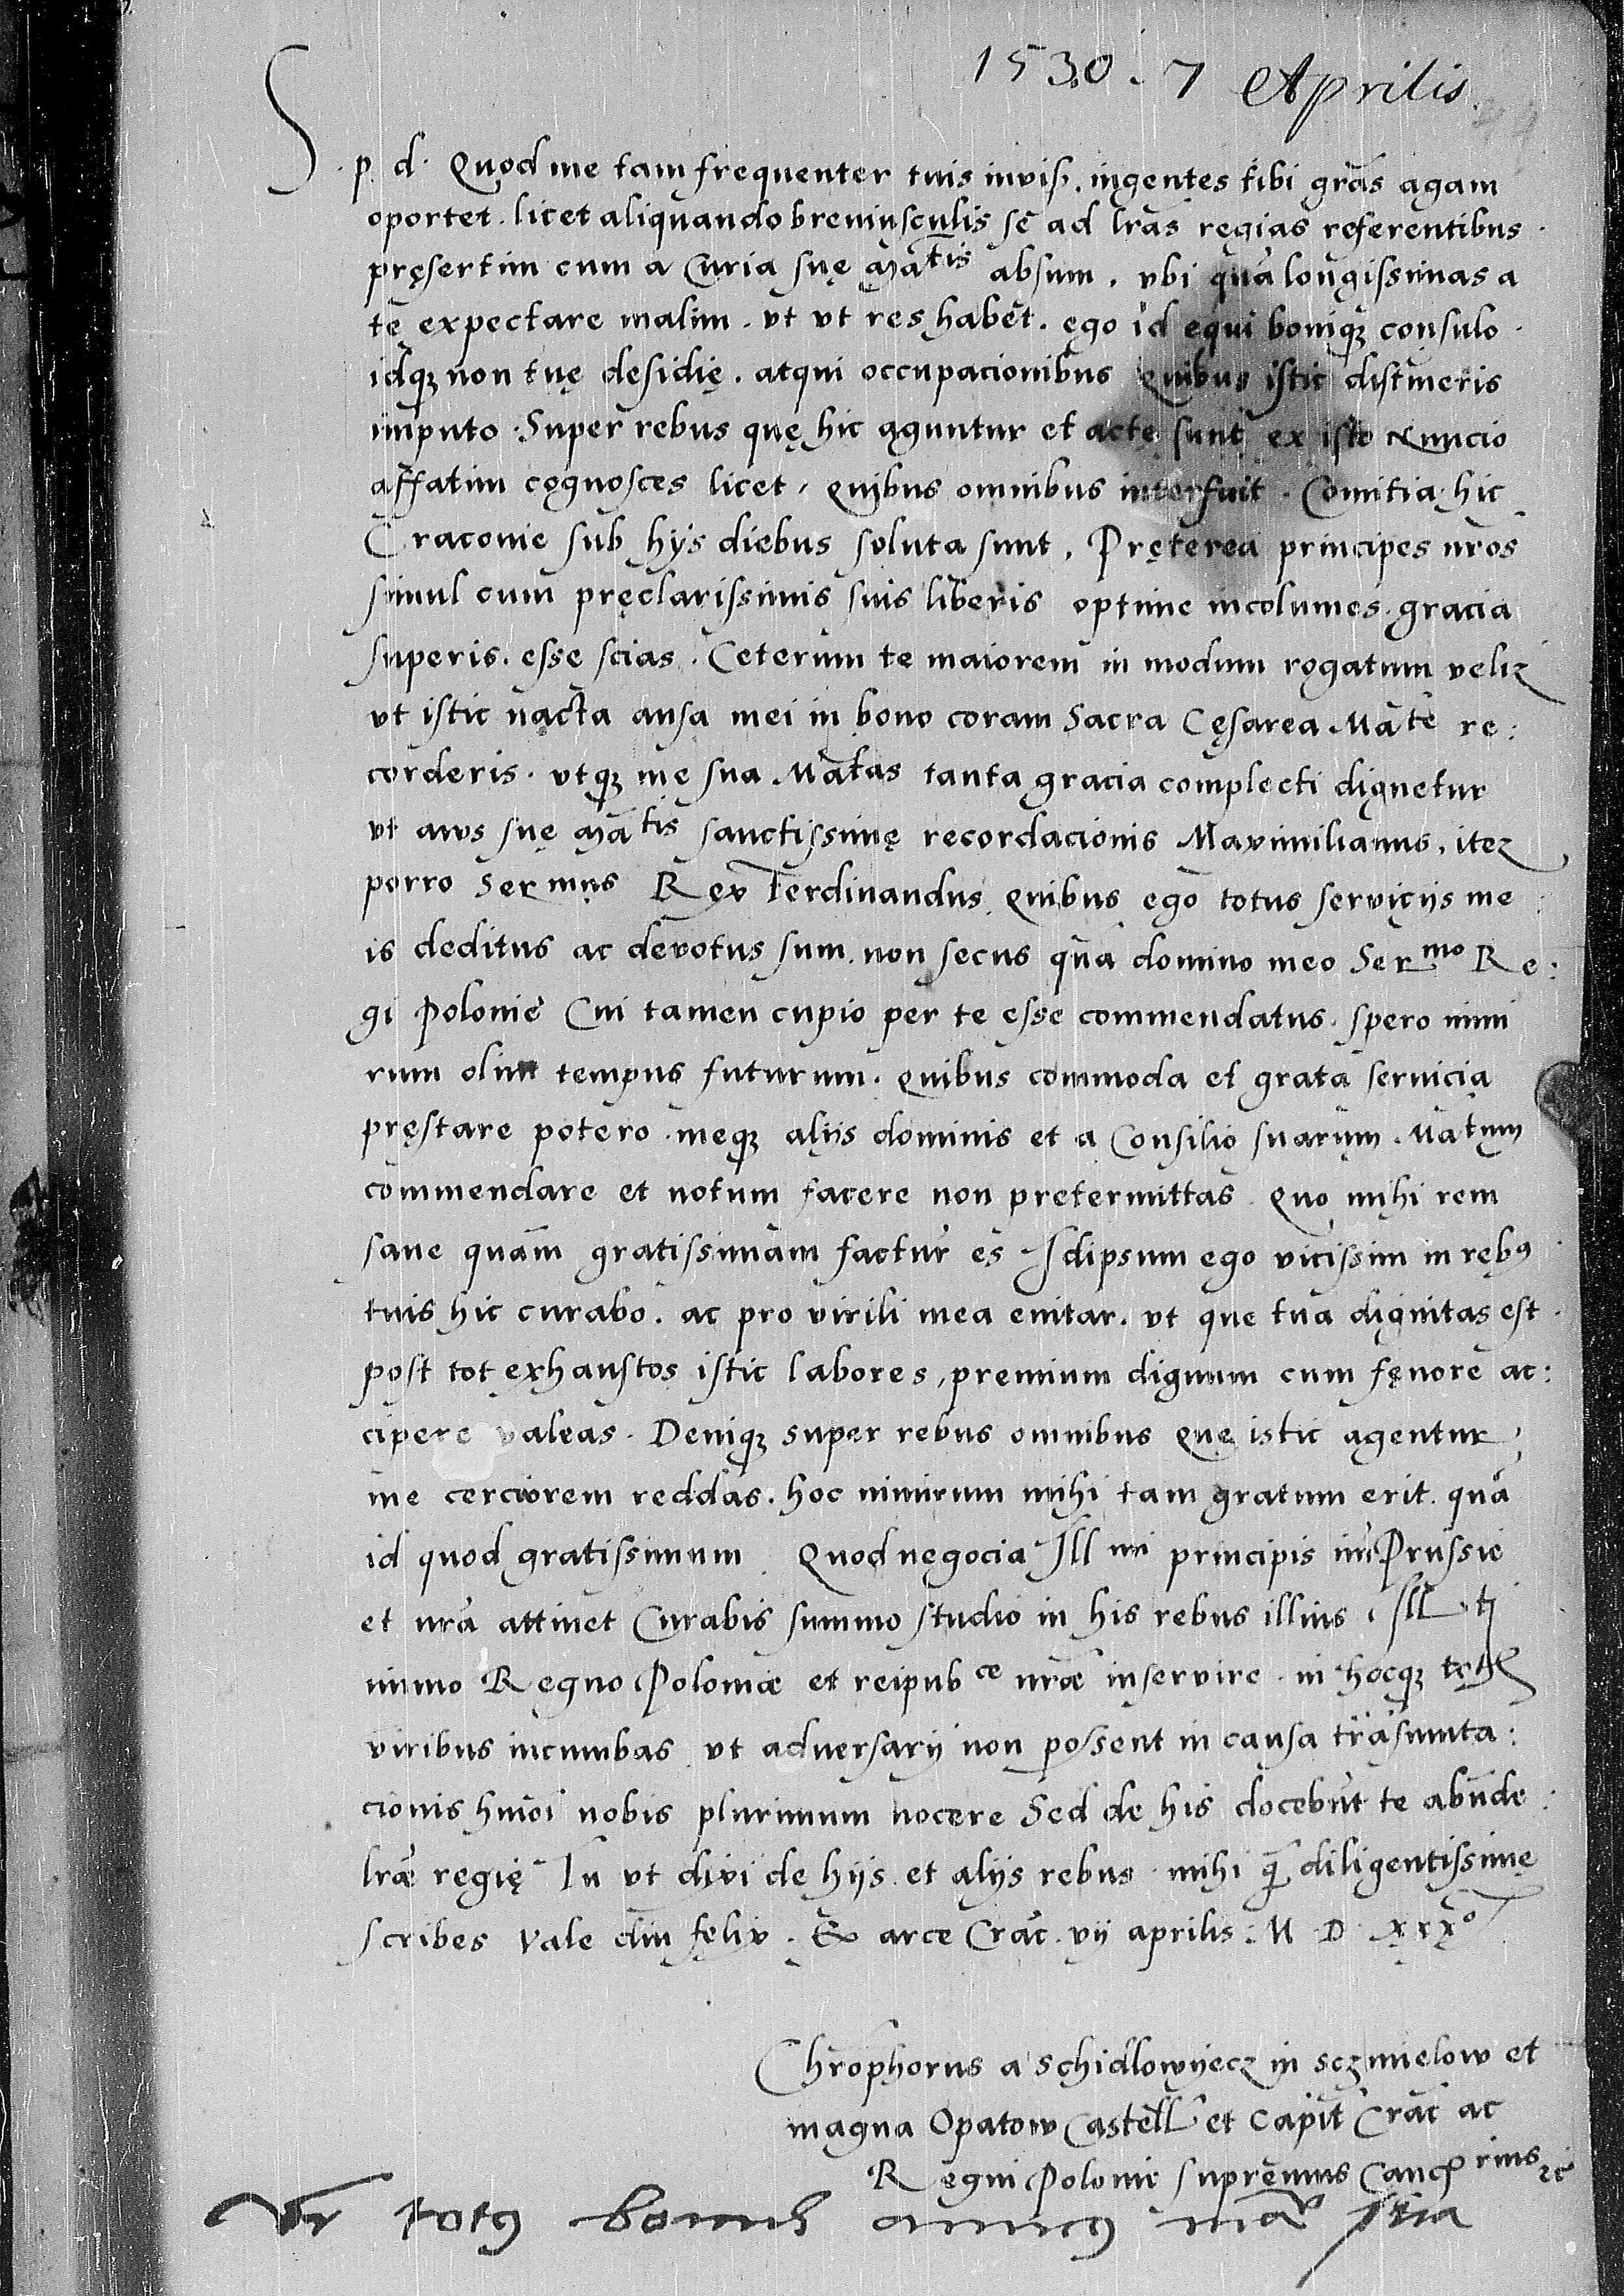 1530. 7 Aprilis
S. p. d. Quod me tam frequenter tuis invisis. ingentes tibi grās agam
oportet. licet aliquando breviusculis sē ad lrās regias referentibus.
pręsertim cum a Curia suę Mātis absum. vbi quā longissimas a
te expectare malim. vt vt res habet. ego id equi boniqꝫ consulo.
idqꝫ non tuę desidię. atqui occupacionibus quibus istic distineris
imputo. Super rebus quę hic aguntur et acte sunt ex isto nuncio
affatim cognosces licet, quibus omnibus interfuit. Comitia hic
Cracovie sub hijs diebus soluta sunt. Pręterea principes nros
simul cum pręclarissimis suis liberis optime incolumes. gracia
superis. esse scias. Ceterum te maiorem in modum rogatum veliꝫ
vt istic nacta ansa mei in bono coram Sacra Cęsarea Mate re:
corderis. vtqꝫ me sua Mātas tanta gracia complecti dignetur
vt avus suę Mātis sanctissimę recordacionis Maximilianus, iteꝫ
porro Sermus Rex Ferdinandus quibus ego totus servicijs me:
is deditus ac devotus sum. non secus quā domino meo Sermo Re:
gi Polonie Cui tamen cupio per te esse commendatus. spero nimi
rum olim tempus futurum. quibus commoda et grata servicia
pręstare potero. meqꝫ alijs dominis et a Consilio suarum Matum
commendare et notum facere non pretermittas. quo mihi rem
sane quam gratissimam factur es Idipsum ego vicissim in rebꝰ
tuis hic curabo. ac pro virili mea enitar. vt que tua dignitas est.
post tot exhaustos istic labores, premium dignum cum fęnore ac:
cipere valeas. Deniqꝫ super rebus omnibus quę istic agentur,
me cerciorem reddas. hoc nimirum mihi tam gratum erit. quā
id quod gratissimum Quod negocia Illmi principis in Prussie
et nrā attinet Curabis summo studio in his rebus illius Ill. tj
immo Regno Poloniæ et reipubce nræ inservire. in hocqꝫ
viribus incumbas vt adversarij non possent in causa trāsumta:
cionis hmōi nobis plurimum nocere Sed de his docebūt te abūde:
lræ regię Tu vt dixi de hijs et alijs rebus mihi q̄ diligentissime
scribes Vale diu felix. Ex arce Crac. vij aprilis. M D xxxo
Chrophorus a Schidlowyecz in Sczmielow et
magna Opatow Castell et Capit Crac ac
Regni Polonie supremus Cancrius ꝛc
Vr totꝰ bonus amicꝰ manu